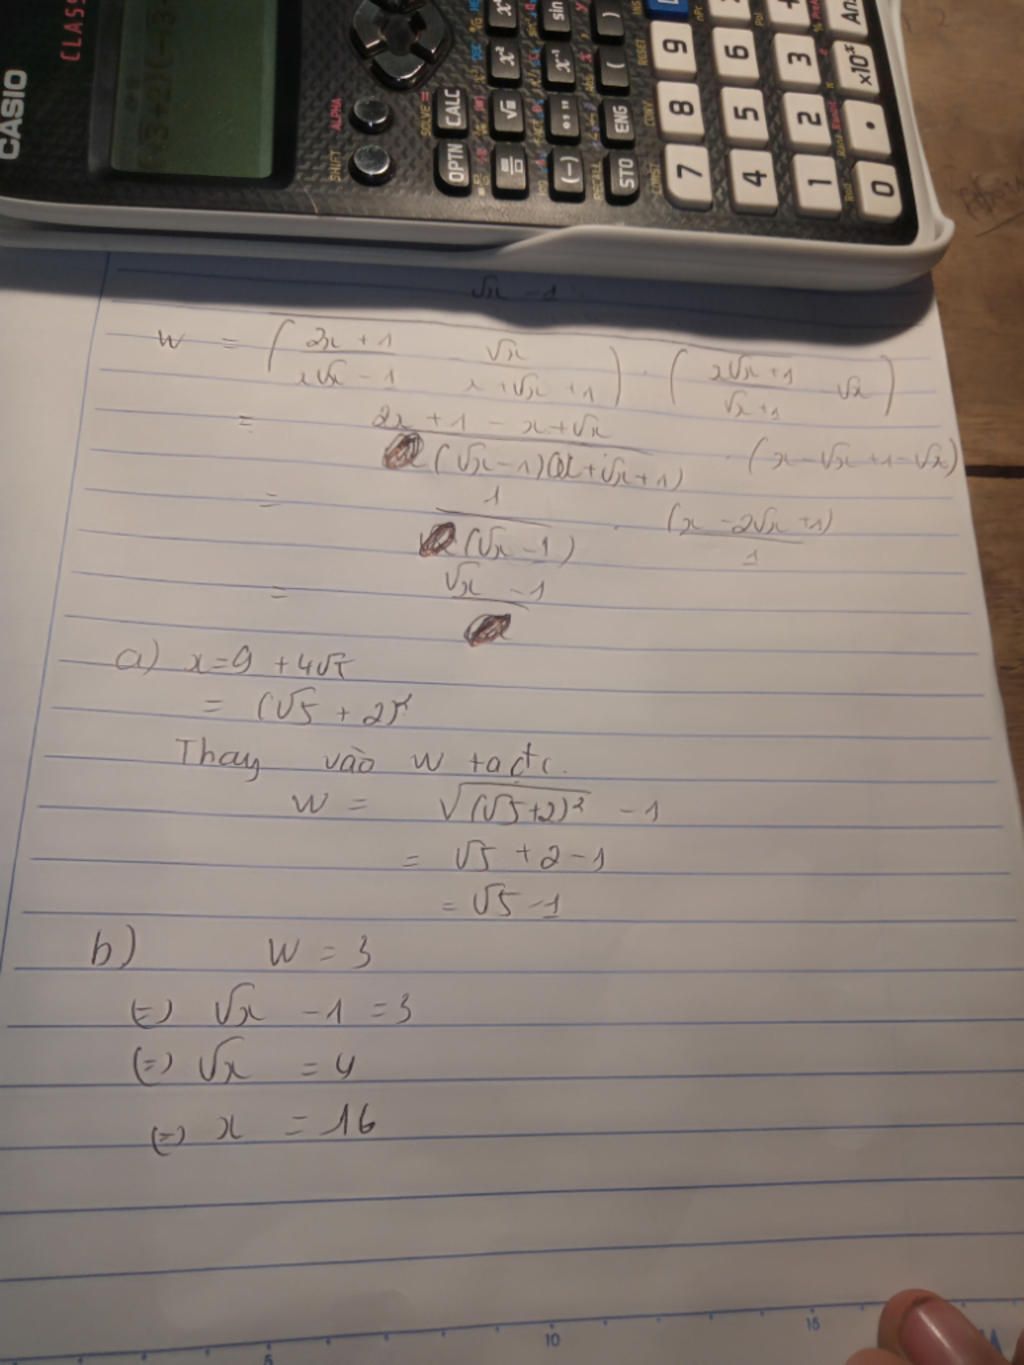 CASIO
CLASS
SHIFT ALPHA
OPTN CALC
SOLVE =
√ x²
(−) °’” x⁻¹ sin
STO ENG ( )
RECALL
7 8 9
4 5 6
1 2 3 +
0 . ×10ˣ An
√x - 1
W = ( 2x + 1 / x√x - 1   √x / x + √x + 1 ) . ( x√x + 1 / √x + 1 - √x )
= 2x + 1 - x + √x / (√x - 1)(x + √x + 1) . (x - √x + 1 - √x)
= 1 / (√x - 1) . (x - 2√x + 1) / 1
= √x - 1
a) x = 9 + 4√5
= (√5 + 2)²
Thay vào W ta đc
W = √(√5 + 2)² - 1
= √5 + 2 - 1
= √5 - 1
b) W = 3
(=) √x - 1 = 3
(=) √x = 4
(=) x = 16
5 10 15